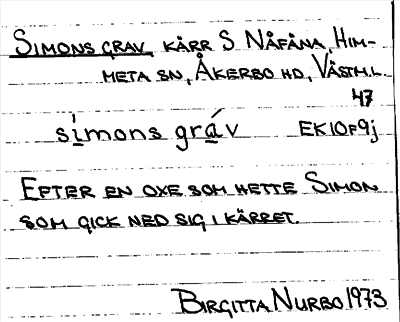 SIMONS GRAV, KÄRR S NÅFÅNA, HIM-
META SN, ÅKERBO HD, VÄSTM.L.
47
símons gráv EK10F9j
EFTER EN OXE SOM HETTE SIMON
SOM GICK NED SIG I KÄRRET.
BIRGITTA NURBO 1973